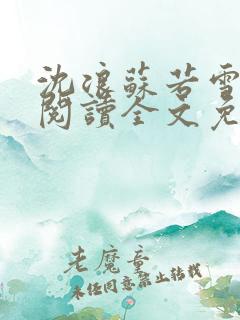 沈浪蘇若雪
閱讀全文免
老魔童
未经同意禁止转载